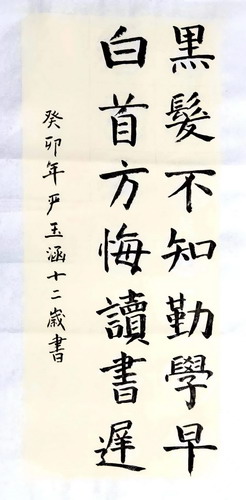 黑髮不知勤學早
白首方悔讀書遲
癸卯年严玉涵十二歲書